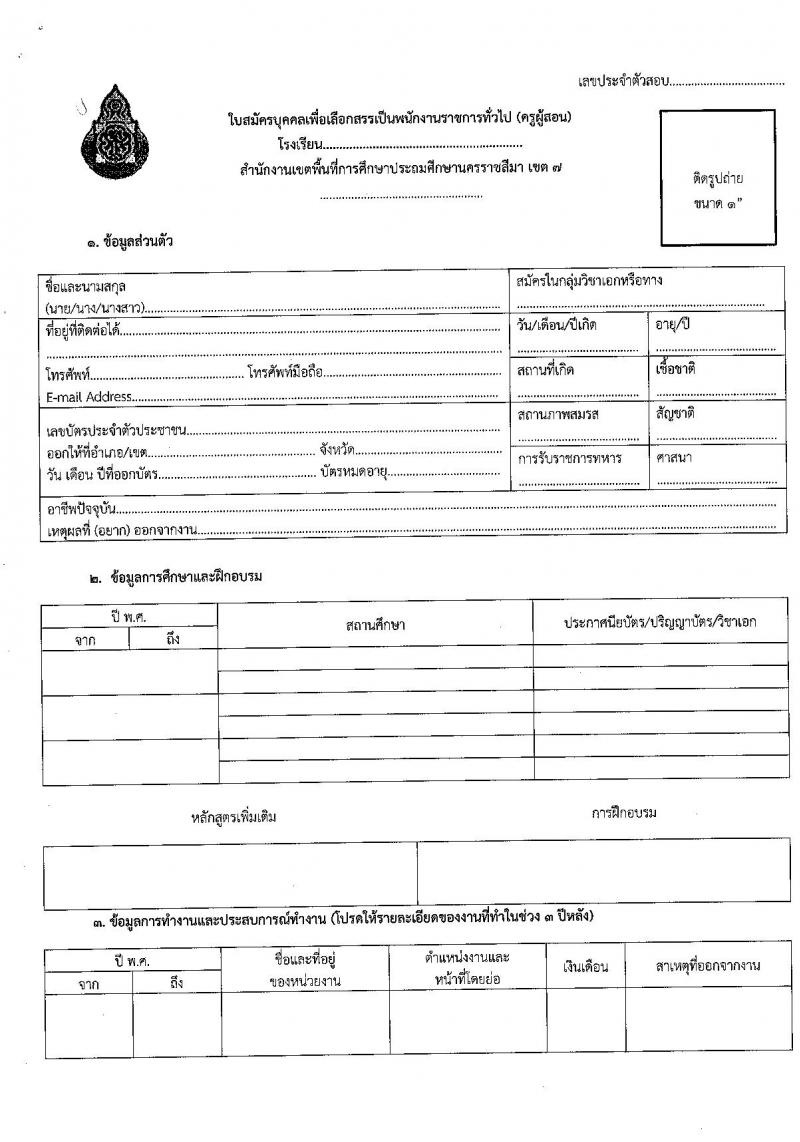 เลขประจำตัวสอบ....................................
ใบสมัครบุคคลเพื่อเลือกสรรเป็นพนักงานราชการทั่วไป (ครูผู้สอน)
โรงเรียน................................................................
สำนักงานเขตพื้นที่การศึกษาประถมศึกษานครราชสีมา เขต ๗
....................................................
ติดรูปถ่าย
ขนาด ๑”
๑. ข้อมูลส่วนตัว
ชื่อและนามสกุล
(นาย/นาง/นางสาว)....................................................
สมัครในกลุ่มวิชาเอกหรือทาง
....................................................
ที่อยู่ที่ติดต่อได้....................................................
....................................................
โทรศัพท์.................................... โทรศัพท์มือถือ....................................
E-mail Address....................................................
วัน/เดือน/ปีเกิด
....................................
อายุ/ปี
....................................
สถานที่เกิด
....................................
เชื้อชาติ
....................................
เลขบัตรประจำตัวประชาชน....................................................
ออกให้ที่อำเภอ/เขต.................................... จังหวัด....................................
วัน เดือน ปีที่ออกบัตร.................................... บัตรหมดอายุ....................................
สถานภาพสมรส
....................................
สัญชาติ
....................................
การรับราชการทหาร
....................................
ศาสนา
....................................
อาชีพปัจจุบัน....................................................
เหตุผลที่ (อยาก) ออกจากงาน....................................................
๒. ข้อมูลการศึกษาและฝึกอบรม
ปี พ.ศ.
จาก ถึง
สถานศึกษา
ประกาศนียบัตร/ปริญญาบัตร/วิชาเอก
หลักสูตรเพิ่มเติม
การฝึกอบรม
๓. ข้อมูลการทำงานและประสบการณ์ทำงาน (โปรดให้รายละเอียดของงานที่ทำในช่วง ๓ ปีหลัง)
ปี พ.ศ.
จาก ถึง
ชื่อและที่อยู่
ของหน่วยงาน
ตำแหน่งงานและ
หน้าที่โดยย่อ
เงินเดือน
สาเหตุที่ออกจากงาน